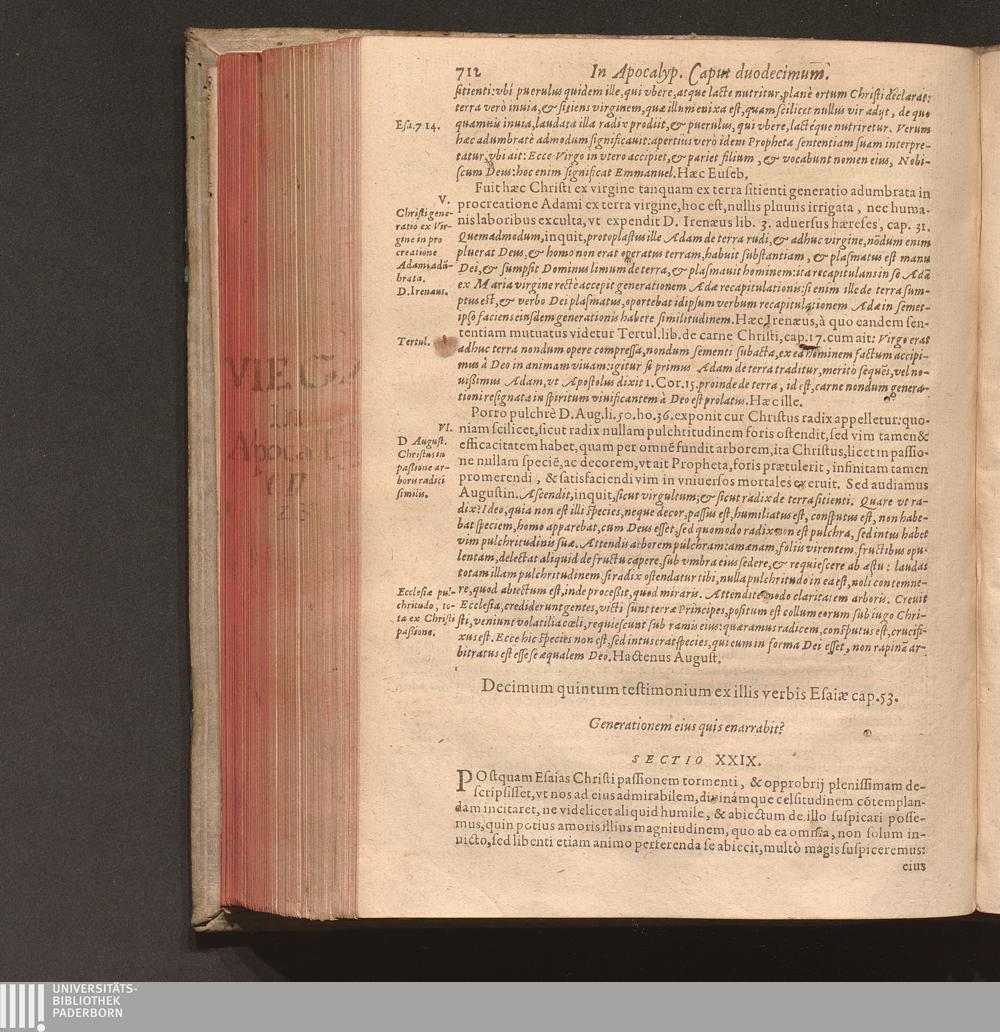 712 In Apocalyp. Caput duodecimum.
sitienti: vbi puerulus quidem ille, qui vbere, atque lacte nutritur, planè ortum Christi declarat:
terra verò inuia, & sitiens virginem, quæ illum enixa est, quam scilicet nullus vir adyt, de quo
Esa. 7 14.
quamuis inuia, laudata illa radix prodiit, & puerulus, qui vbere, lactéque nutriretur. Verum
hæc adumbratè admodum significauit: apertius verò idem Propheta sententiam suam interpre-
tatur, vbi ait: Ecce Virgo in vtero accipiet, & pariet filium, & vocabunt nomen eius, Nobi-
scum Deus: hoc enim significat Emmanuel. Hæc Euseb.
V.
Christi gene-
ratio ex Vir-
gine in pro
creatione
Adami adū-
brata.
D. Irenæus.
Fuit hæc Christi ex virgine tanquam ex terra sitienti generatio adumbrata in
procreatione Adami ex terra virgine, hoc est, nullis pluuiis irrigata, nec huma-
nis laboribus exculta, vt expendit D. Irenæus lib. 3. aduersus hæreses, cap. 31.
Quemadmodum, inquit, protoplastus ille Adam de terra rudi, & adhuc virgine, nōdum enim
pluerat Deus, & homo non erat operatus terram, habuit substantiam, & plasmatus est manu
Dei, & sumpsit Dominus limum de terra, & plasmauit hominem: ita recapitulans in se Adā
ex Maria virgine rectè accepit generationem Adæ recapitulationis: si enim ille de terra sum-
ptus est, & verbo Dei plasmatus, oportebat idipsum verbum recapitulationem Adæ in semet-
ipso faciens eiusdem generationis habere similitudinem. Hæc Irenæus, à quo eandem sen-
tentiam mutuatus videtur Tertul. lib. de carne Christi, cap. 17. cum ait: Virgo erat
Tertul.
adhuc terra nondum opere compressa, nondum sementi subacta, ex ea hominem factum accipi-
mus à Deo in animam viuam: igitur si primus Adam de terra traditur, meritò sequēs, vel no-
uissimus Adam, vt Apostolus dixit 1. Cor. 15. proinde de terra, id est, carne nondum genera-
tioni resignata in spiritum viuificantem à Deo est prolatus. Hæc ille.
VI.
D August.
Christus in
passione ar-
boris radici
similis.
Porro pulchrè D. Aug. li. 50. ho. 36. exponit cur Christus radix appelletur: quo-
niam scilicet, sicut radix nullam pulchritudinem foris ostendit, sed vim tamen &
efficacitatem habet, quam per omnē fundit arborem, ita Christus, licet in passio-
ne nullam speciē, ac decorem, vt ait Propheta, foris prætulerit, infinitam tamen
promerendi, & satisfaciendi vim in vniuersos mortales exeruit. Sed audiamus
Augustin. Ascendit, inquit, sicut virgultum; & sicut radix de terra sitienti. Quare vt ra-
dix? Ideo, quia non est illi species, neque decor, passus est, humiliatus est, consputus est, non habe-
bat speciem, homo apparebat, cum Deus esset, sed quomodo radix non est pulchra, sed intus habet
vim pulchritudinis suæ. Attendis arborem pulchram: amœnam, foliis virentem, fructibus opu-
lentam, delectat aliquid de fructu capere, sub vmbra eius sedere, & requiescere ab æstu: laudas
totam illam pulchritudinem, si radix ostendatur tibi, nulla pulchritudo in ea est, noli contemne-
Ecclesiæ pul-
chritudo, to-
ta ex Christi
passione.
re, quod abiectum est, inde processit, quod miraris. Attendite modo claritatem arboris. Creuit
Ecclesia, crediderunt gentes, victi sunt terræ Principes, positum est collum eorum sub iugo Chri-
sti, veniunt volatilia cœli, requiescunt sub ramis eius: quæramus radicem, consputus est, crucifi-
xus est. Ecce hic species non est, sed intus erat species, qui cum in forma Dei esset, non rapinā ar-
bitratus est esse se æqualem Deo. Hactenus August.
Decimum quintum testimonium ex illis verbis Esaiæ cap. 53.
Generationem eius quis enarrabit?
SECTIO XXIX.
POstquam Esaias Christi passionem tormenti, & opprobrij plenissimam de-
scripsisset, vt nos ad eius admirabilem, diuinámque celsitudinem cōtemplan-
dam incitaret, ne videlicet aliquid humile, & abiectum de illo suspicari posse-
mus, quin potius amoris illius magnitudinem, quo ab ea omnia, non solum in-
uicto, sed libenti etiam animo perferenda se abiecit, multò magis suspiceremus:
eius
VIE
In
Apoca
UNIVERSITÄTS-
BIBLIOTHEK
PADERBORN